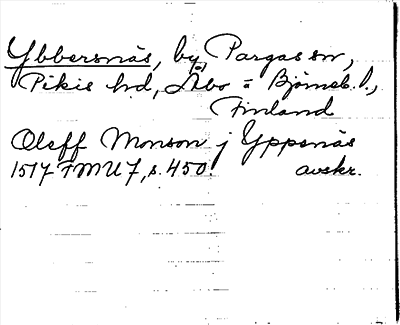 Ybbersnäs, by, Pargas sn,
Pikis hd, Åbo = Björneb. l.,
Finland
Oleff Monson j Yppenäs
1517 FMU 7, s. 450. avskr.